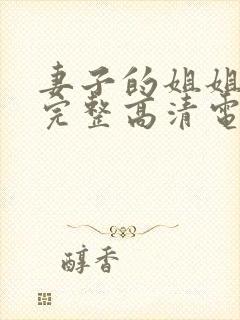 妻子的姐姐
完整高清電
醇香